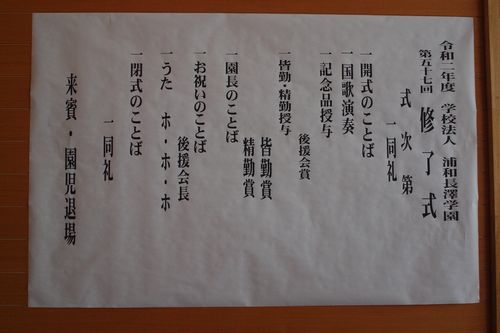 令和二年度 学校法人 浦和長澤学園
第五十七回 修了式
式次第
一同礼
一開式のことば
一国歌演奏
一記念品授与
後援会賞
一皆勤・精勤授与
皆勤賞
精勤賞
一園長のことば
一お祝いのことば
後援会長
一うた ホ・ホ・ホ
一閉式のことば
一同礼
来賓・園児退場